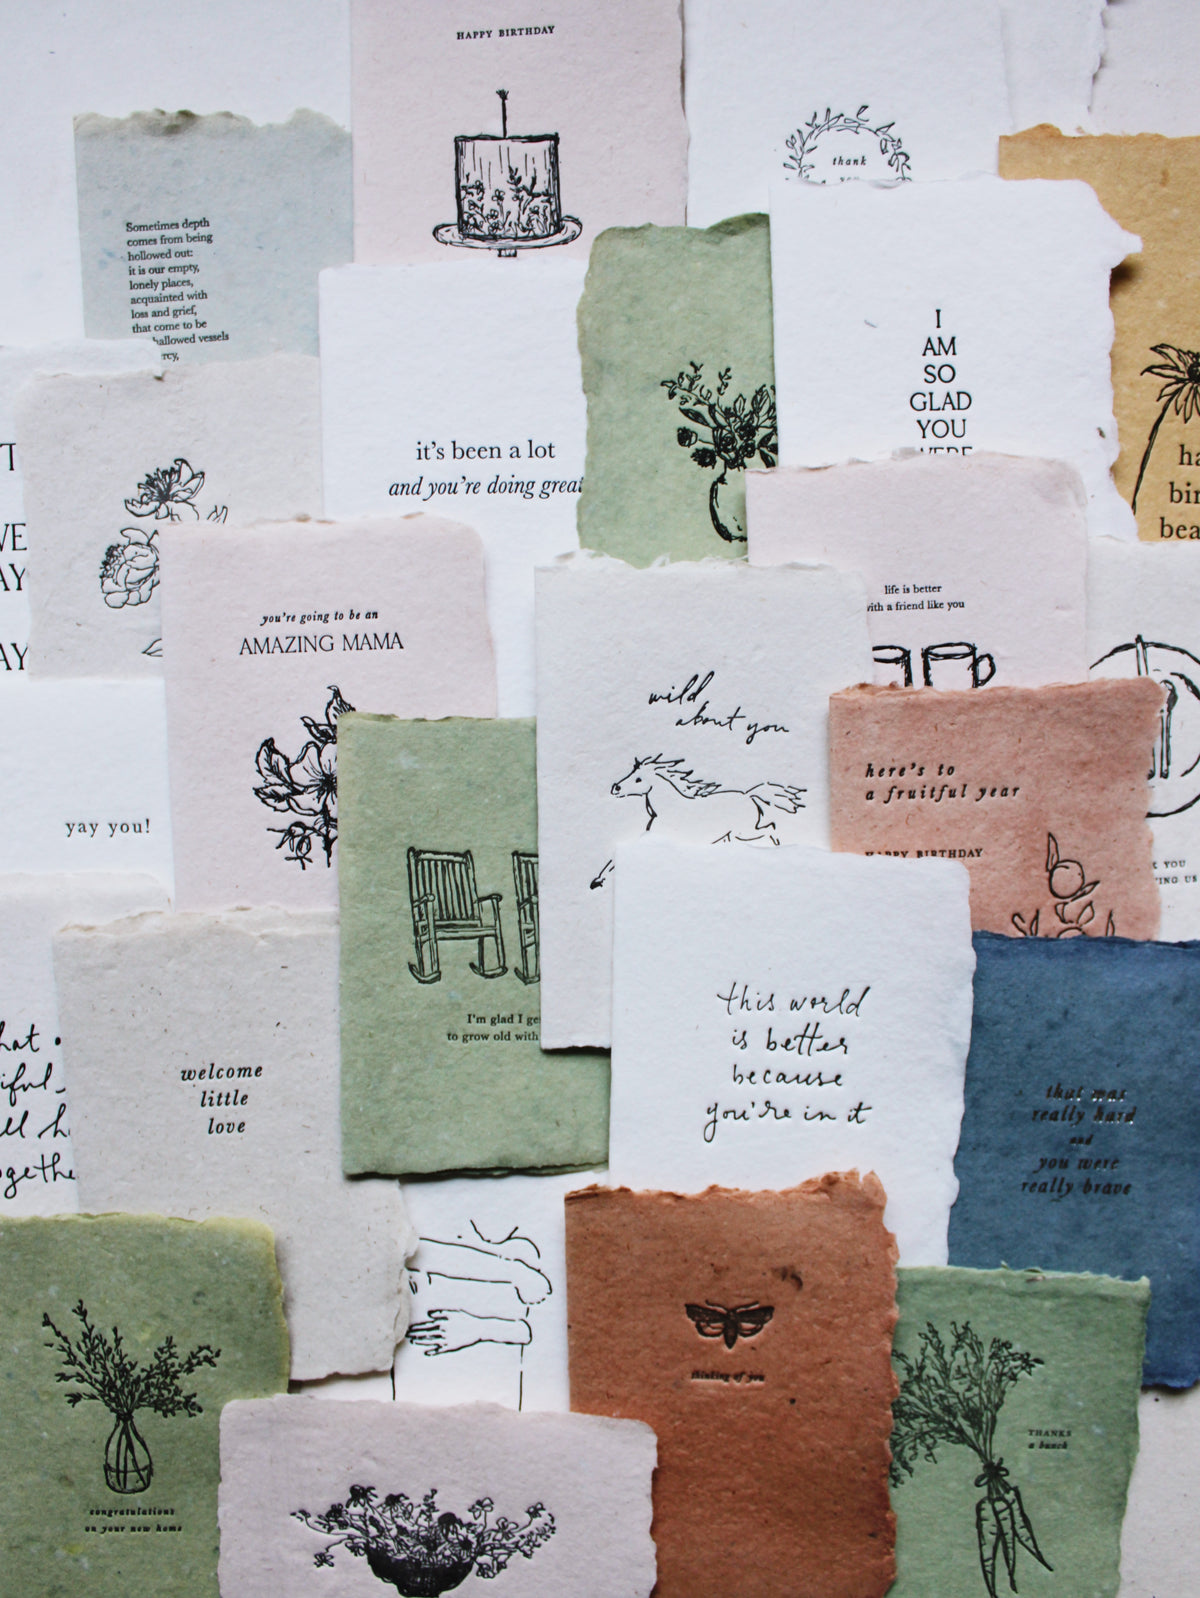 HAPPY BIRTHDAY
thank
Sometimes depth
comes from being
hollowed out:
it is our empty,
lonely places,
acquainted with
loss and grief,
that come to be
hallowed vessels
I
AM
SO
GLAD
YOU
WERE
it's been a lot
and you're doing great
life is better
with a friend like you
you're going to be an
AMAZING MAMA
wild
about you
here's to
a fruitful year
HAPPY BIRTHDAY
YOU
US
yay you!
I'm glad I
to grow old with
this world
is better
because
you're in it
welcome
little
love
that was
really hard
and
you were
really brave
thinking of you
THANKS
a bunch
congratulations
on your new home